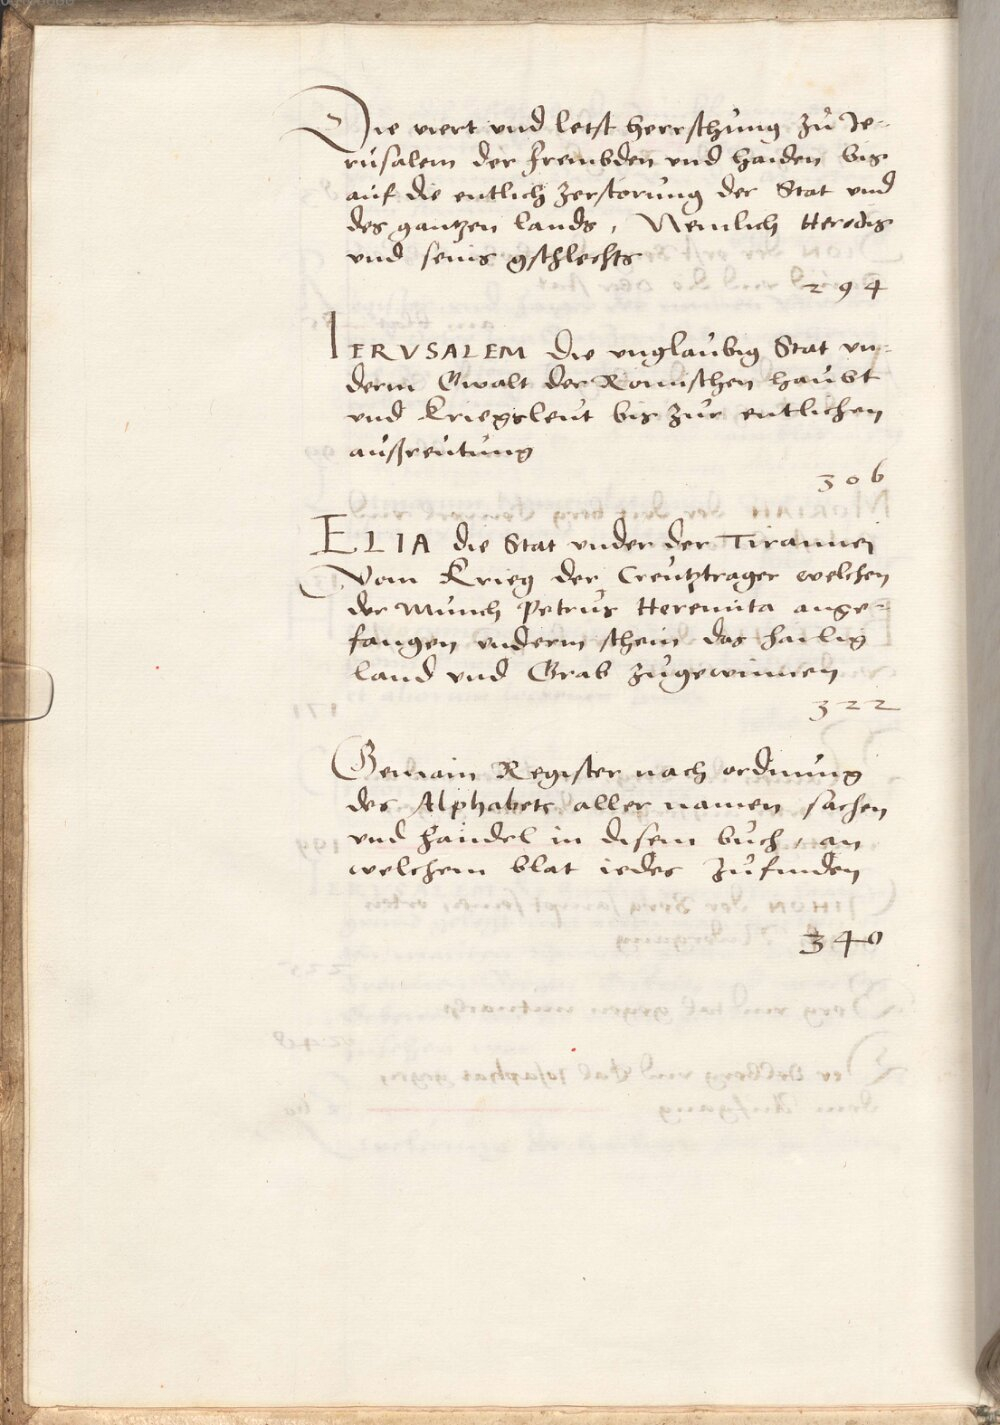 Die viert vnd letst herrschung zu Je-
rusalem der frembden vnd haiden bis
auf die entlich zerstorung der Stat vnd
des gantzen lands, Nemlich Herodis
vnd seins gschlechts
294
IERVSALEM die vnglaubig Stat vn-
derm Gwalt der Romischen haubt
vnd kriegsleut bis zur entlichen
außreutung
306
ELIA die Stat vnder der Tirannei
Vom Krieg der Creutztrager welchen
der Munch Petrus Heremita ange-
fangen vnderm schein das hailig
land vnd Grab zugewinnen
322
Gemain Register nach ordnung
des Alphabets aller namen sachen
vnd handel in disem buch, an
welchem blat iedes zufinden
340